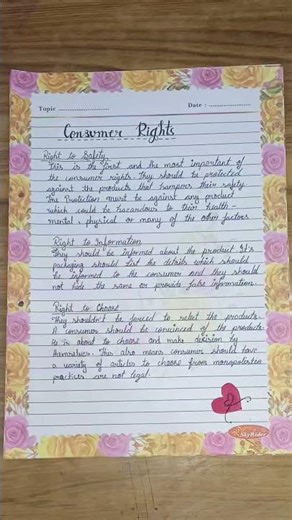 Topic
Date :
Consumer Rights
Right to Safety
This is the first and the most important of
the consumer rights. They should be protected
against the products that hampers their safety.
The Protection must be against any product
which could be hazardous to their health-
mental, physical or many of the other factors.
Right to Information
They should be informed about the product. It's
packaging should list the details which should
be informed to the consumer and they should
not hide the same or provide false information.
Right to Choose
They shouldn't be forced to select the product.
A consumer should be convinced of the product
He is about to choose and make decision by
themselves. This also means consumer should have
a variety of articles to choose from monopolistic
practices are not legal.